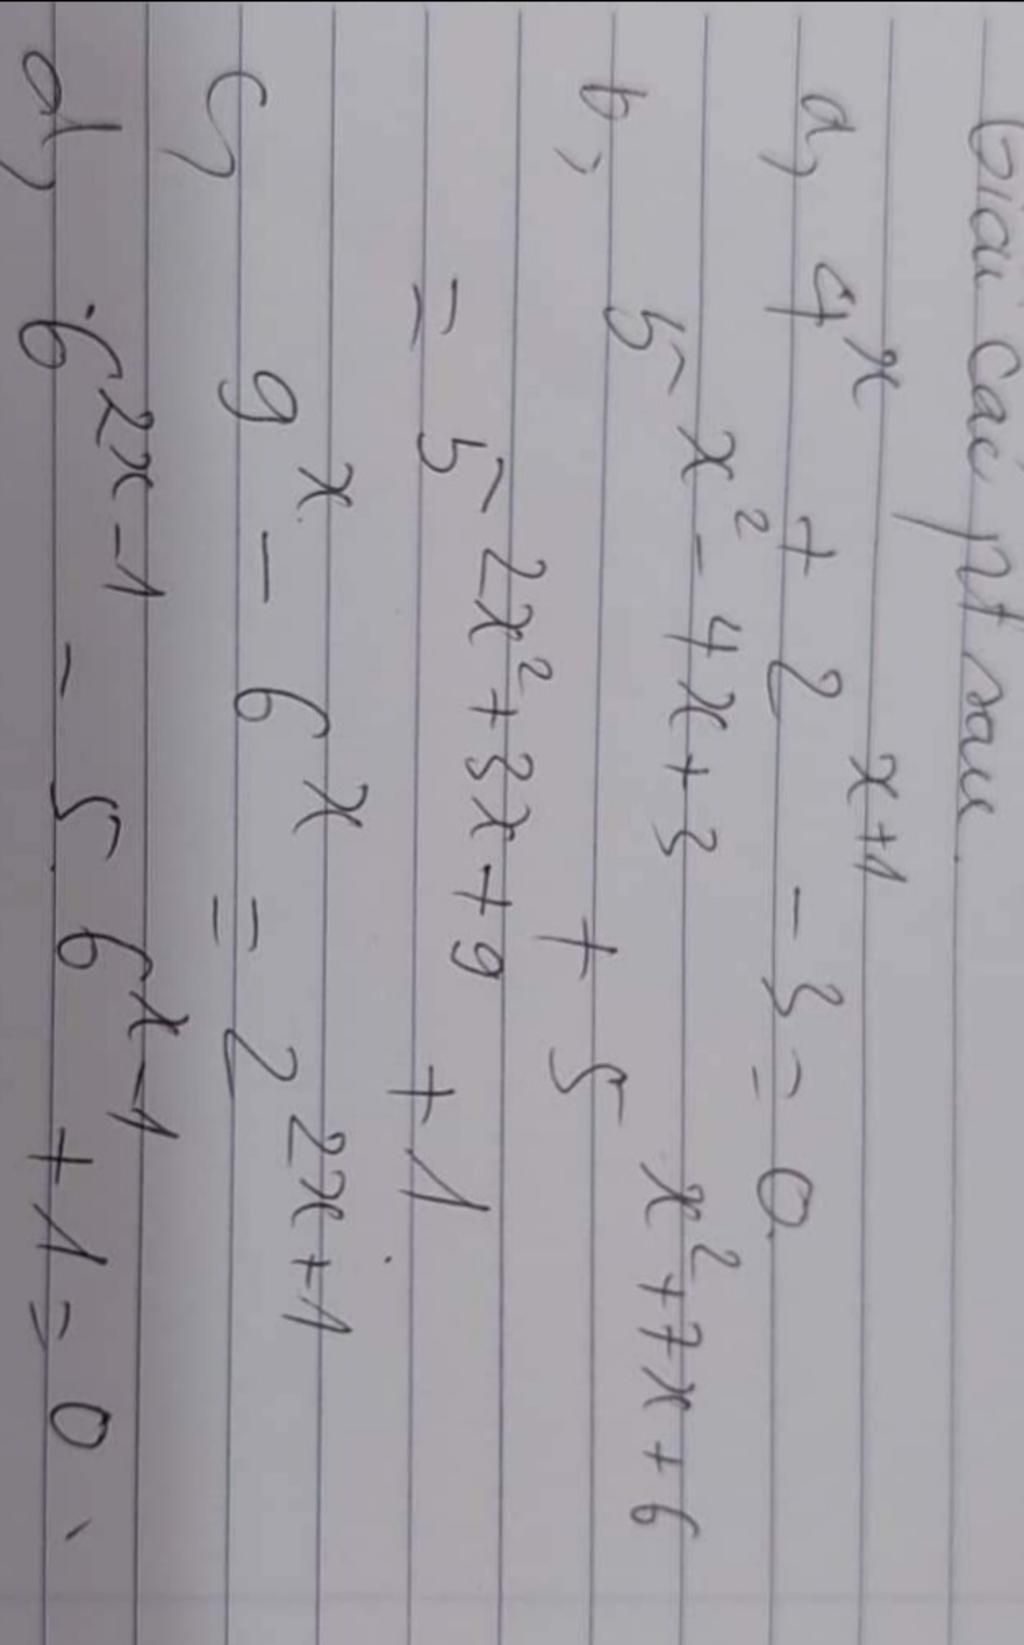 Giải các pt sau
a, 4^x + 2^{x+1} - 3 = 0
b, 5^{x^2-4x+3} + 5^{x^2+7x+6}
= 5^{2x^2+3x+9} + 1
c, 9^x - 6^x = 2^{2x+1}
d, 6^{2x-1} - 5 6^{x-1} + 1 = 0